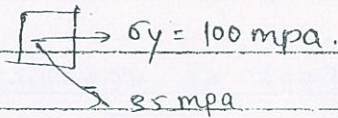 σy = 100 mpa.
35 mpa